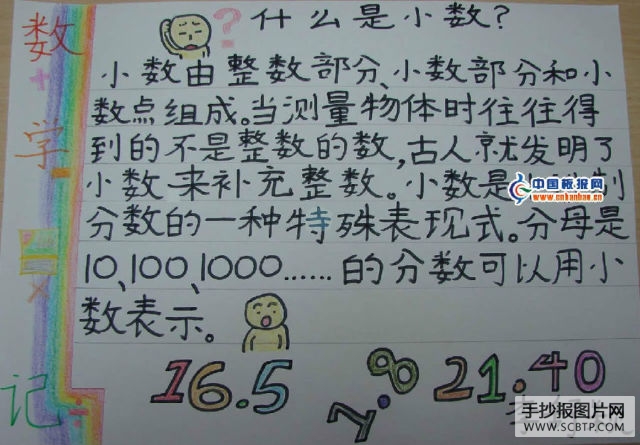 什么是小数?
小数由整数部分、小数部分和小
数点组成。当测量物体时往往得
到的不是整数的数,古人就发明了
小数来补充整数。小数是
制
分数的一种特殊表现式。分母是
10,100,1000……的分数可以用小
数表示。
数
+
学
-
=
×
记
÷
16.5
7.8
21.40
中国板报网
www.cnbanbao.cn
手抄报图片网
WWW.SCBTP.COM